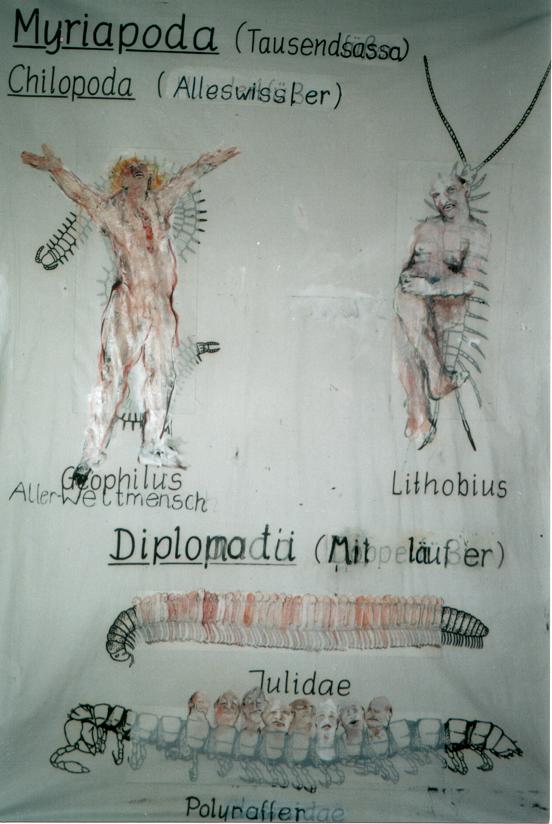 Myriapoda (Tausendsassa)
Chilopoda (Alleswisser)
Geophilus
Aller-Weltmensch
Lithobius
Diplomatii (Mitläufer)
Julidae
Polyraffer